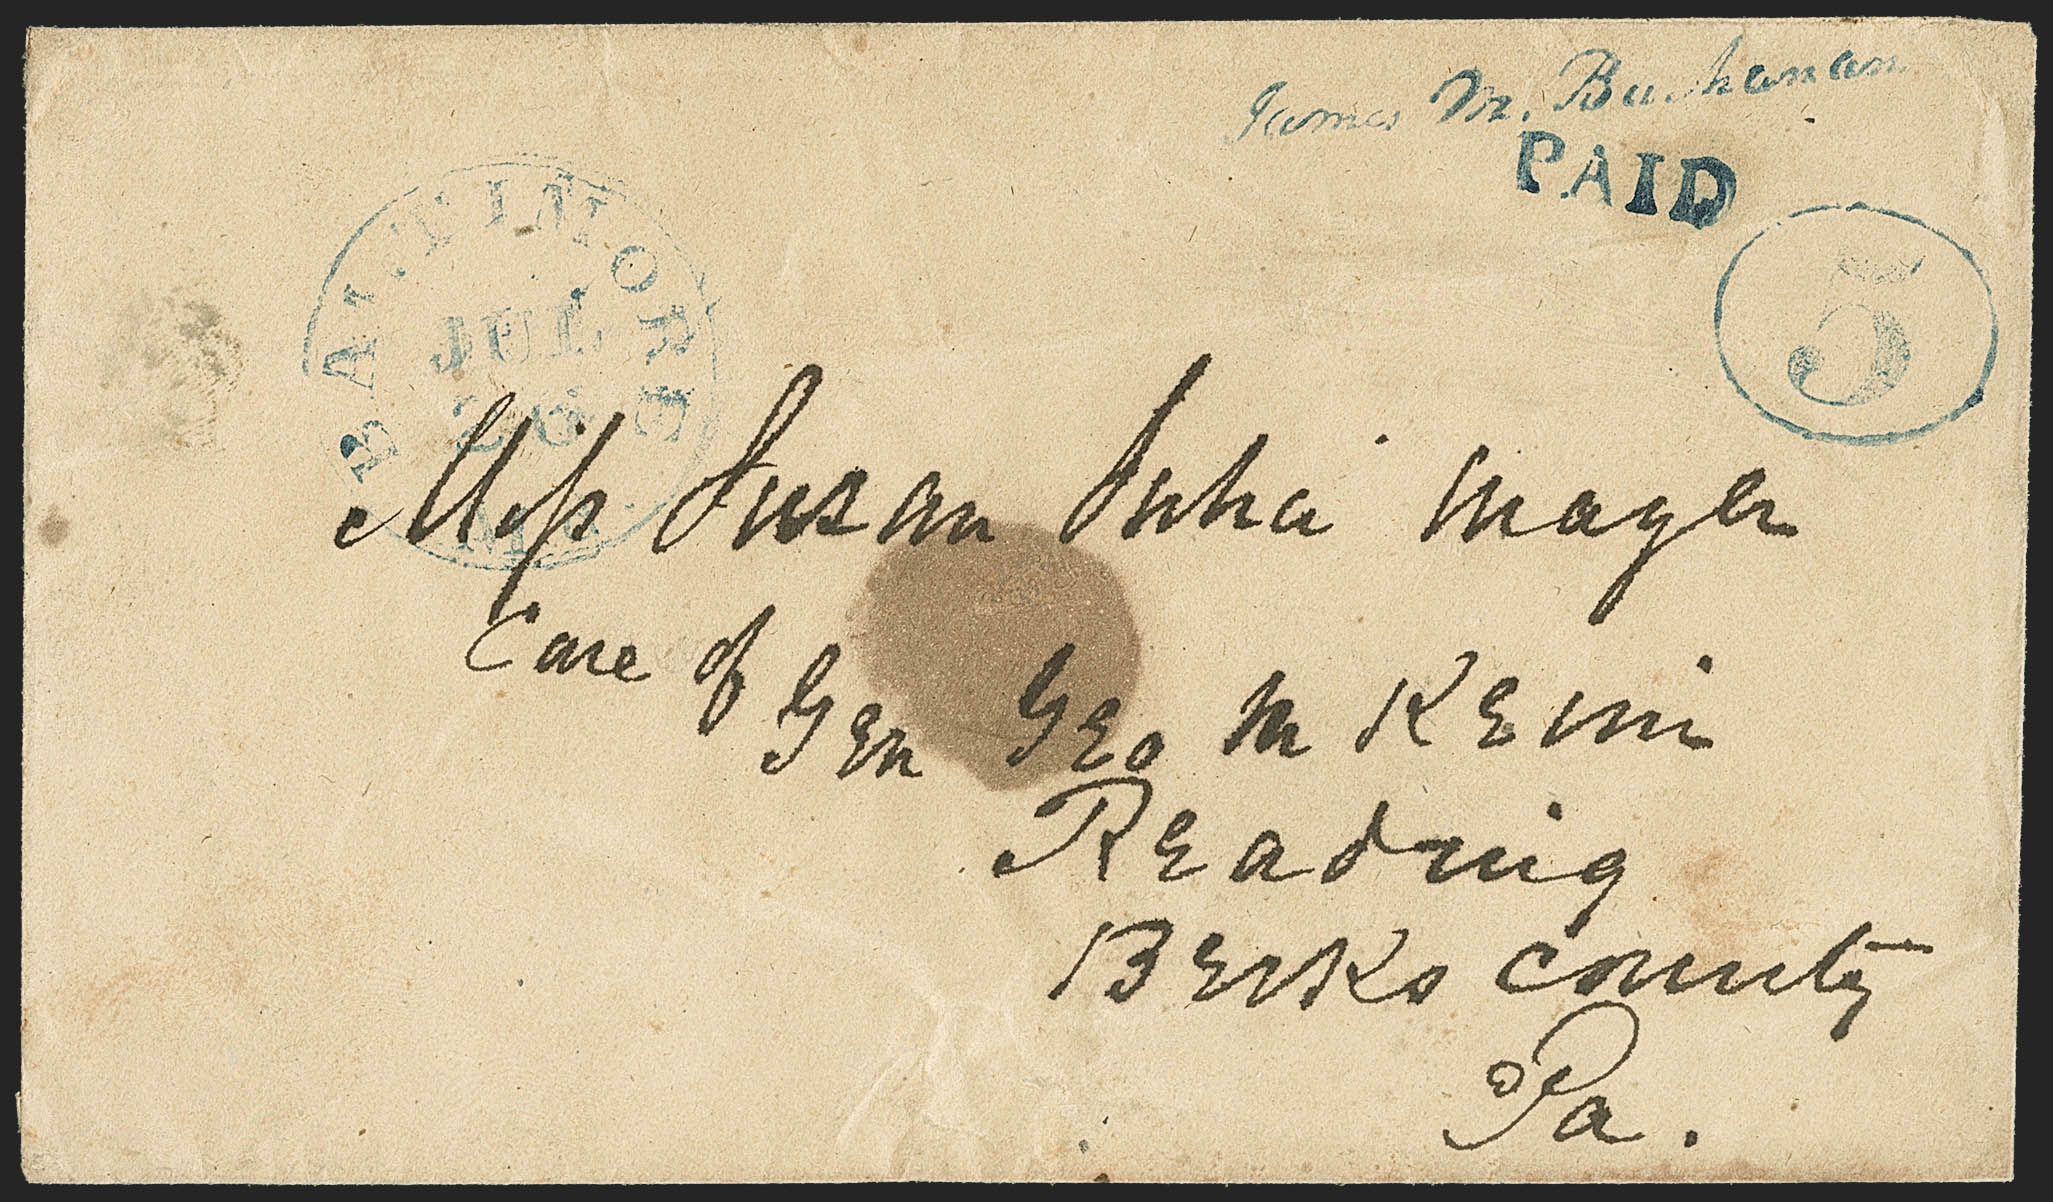 James M. Buchanan
PAID
5
BALTIMORE Md.
JUL
26
Miss Susan Julia Mayer
Care of
Gen Geo M Keim
Reading
Berks County
Pa.